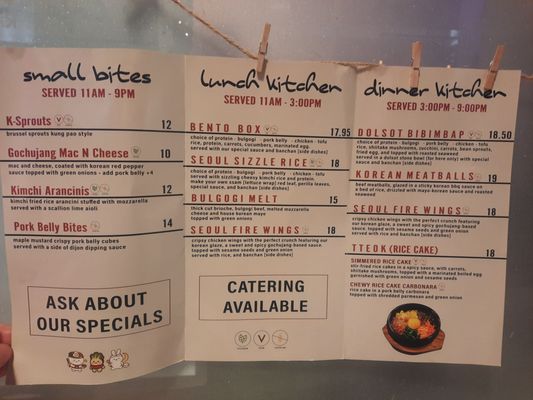 small bites
SERVED 11AM - 9PM
K-Sprouts 12
brussel sprouts kung pao style
Gochujang Mac N Cheese 10
mac and cheese, coated with korean red pepper
sauce topped with green onions - add pork belly +4
Kimchi Arancinis 12
kimchi fried rice arancini stuffed with mozzarella
served with a scallion lime aioli
Pork Belly Bites 14
maple mustard crispy pork belly cubes
served with a side of dijon dipping sauce
ASK ABOUT
OUR SPECIALS
lunch kitchen
SERVED 11AM - 3:00PM
BENTO BOX 17.95
choice of protein · bulgogi · pork belly · chicken · tofu
rice, protein, carrots, cucumbers, marinated egg
served with our special sauce and banchan (side dishes)
SEOUL SIZZLE RICE 18
choice of protein · bulgogi · pork belly · chicken · tofu
served with sizzling cheesy kimchi rice and protein.
make your own ssam (lettuce wrap) red leaf, perilla leaves,
special sauce, and banchan (side dishes)
BULGOGI MELT 15
thick cut brioche, bulgogi beef, melted mozzarella
cheese and house korean mayo
topped with green onions
SEOUL FIRE WINGS 18
crispy chicken wings with the perfect crunch featuring our
korean glaze, a sweet and spicy gochujang based sauce.
topped with sesame seeds and green onion
served with rice, and banchan (side dishes)
CATERING
AVAILABLE
dinner kitchen
SERVED 3:00PM - 9:00PM
DOLSOT BIBIMBAP 18.50
choice of protein · bulgogi · pork belly · chicken · tofu
rice, shiitake mushrooms, zucchini, carrots, bean sprouts,
fried egg, and topped with roasted seaweed
served in a dolsot stone bowl (for here only) with special
sauce and banchan (side dishes)
KOREAN MEATBALLS 19
beef meatballs, glazed in a sticky korean bbq sauce on
a bed of rice, drizzled with mayo korean sauce and roasted
seaweed
SEOUL FIRE WINGS 18
crispy chicken wings with the perfect crunch featuring
our korean glaze, a sweet and spicy gochujang based
sauce. topped with sesame seeds and green onion
served with rice and banchan (side dishes)
TTEOK (RICE CAKE) 18
SIMMERED RICE CAKE
stir-fried rice cakes in a spicy sauce, with carrots,
shiitake mushrooms, topped with a marinated boiled egg
garnished with green onion and sesame seeds
CHEWY RICE CAKE CARBONARA
rice cake in a pork belly carbonara
topped with shredded parmesan and green onion